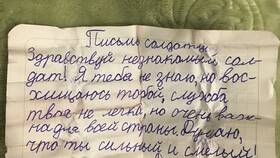 Письмо солдату
Здравствуй незнакомый сол-
дат! Я тебя не знаю, но вос-
хищаюсь тобой, служба
твоя не легка, но очень важ-
на для всей страны. Думаю,
что ты сильный и смелый!